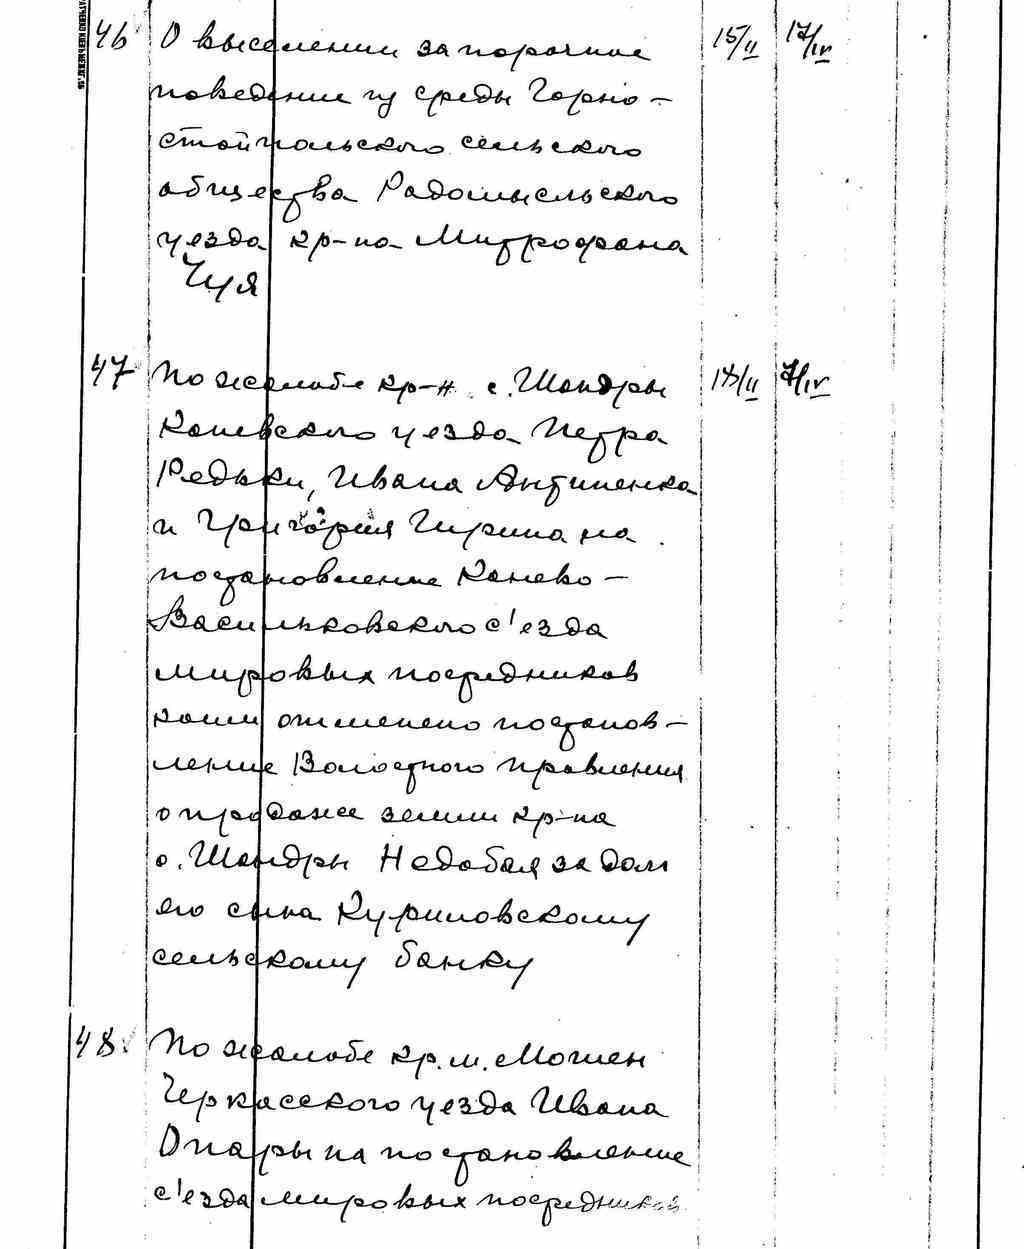 46 О выселении за порочное 15/II 17/IV
поведение из среды Горно-
стайпольского сельского
общества Радомысльского
уезда кр-на Митрофана
Чуя
47 По жалобе кр-н с. Шандры 18/II 7/IV
Каневского уезда Петра
Редьки, Ивана Антипенка
и Григория Гирина на
постановление Канево-
Васильковского с'езда
мировых посредников
коим отменено постанов-
ление Волостного правления
о продаже земли кр-на
с. Шандры Недобая за долг
его сына Куриловскому
сельскому банку
48 По жалобе кр. м. Мошен
Черкасского уезда Ивана
Опары на постановление
с'езда мировых посредников